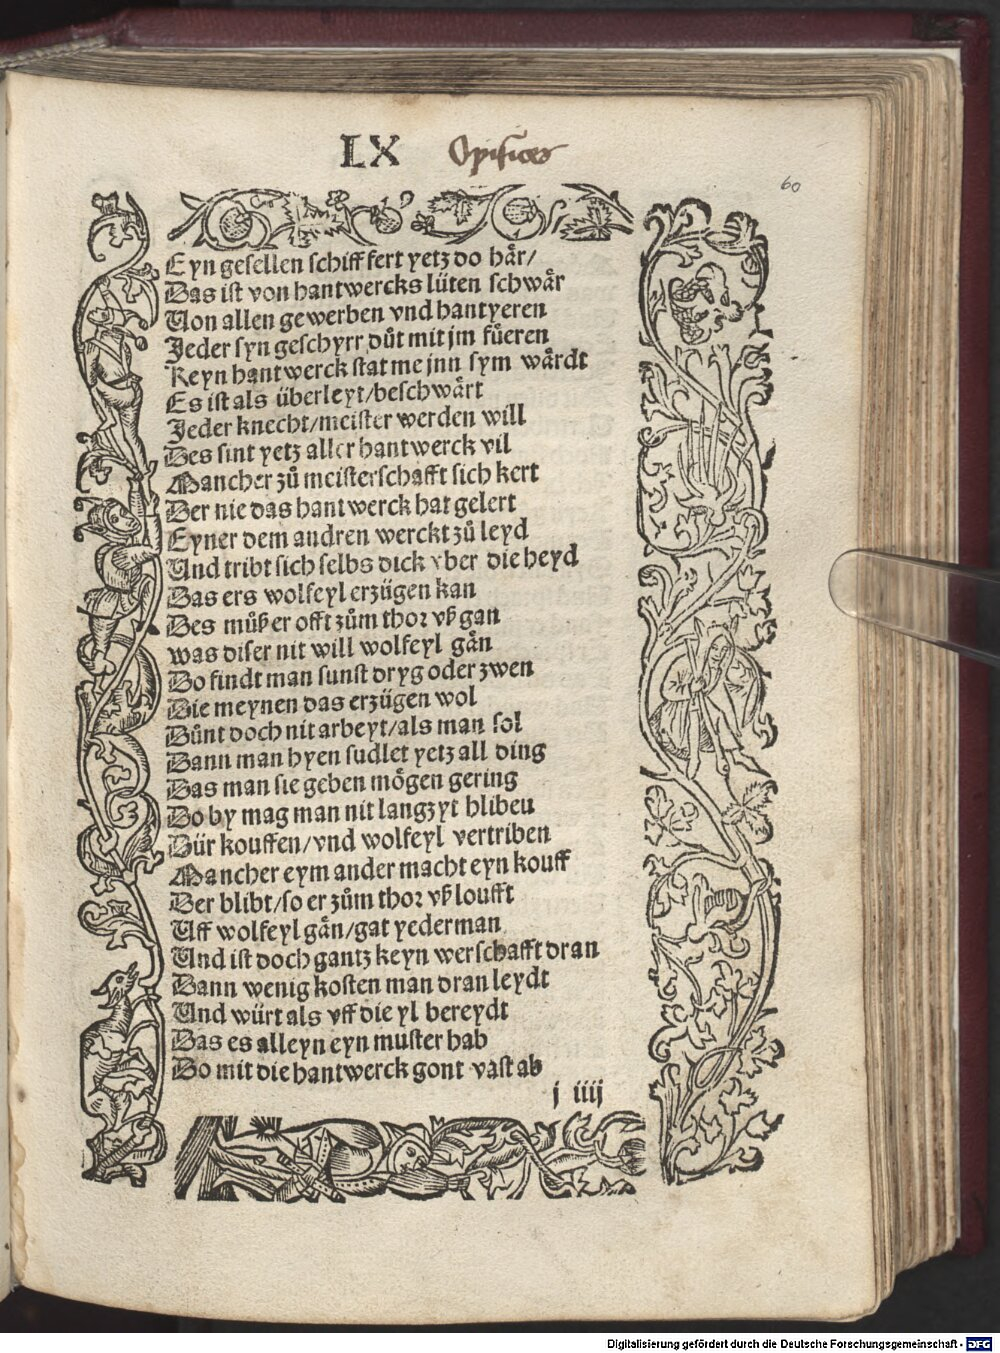 LX Opifices
60
Eyn gesellen schiff fert yetz do hår/
Das ist von hantwercks lüten schwår
Uon allen gewerben vnd hantyeren
Jeder syn geschyrr důt mit jm fůeren
Keyn hantwerck stat me jnn sym wårdt
Es ist als überleyt/beschwårt
Jeder knecht/meister werden will
Des sint yetz aller hantwerck vil
Mancher zů meisterschafft sich kert
Der nie das hantwerck hat gelert
Eyner dem andren werckt zů leyd
Und tribt sich selbs dick vber die heyd
Das ers wolfeyl erzügen kan
Des můß er offt zům thor vß gan
was diser nit will wolfeyl gån
Do findt man sunst dryg oder zwen
Die meynen das erzügen wol
Důnt doch nit arbeyt/als man sol
Dann man hyen sudlet yetz all ding
Das man sie geben mögen gering
Do by mag man nit langzyt blibeu
Dür kouffen/vnd wolfeyl vertriben
Mancher eym ander macht eyn kouff
Der blibt/so er zům thor vß loufft
Uff wolfeyl gån/gat yederman
Und ist doch gantz keyn werschafft dran
Dann wenig kosten man dran leydt
Und würt als vff die yl bereydt
Das es alleyn eyn muster hab
Do mit die hantwerck gont vast ab
j iiij
Digitalisierung gefördert durch die Deutsche Forschungsgemeinschaft - DFG